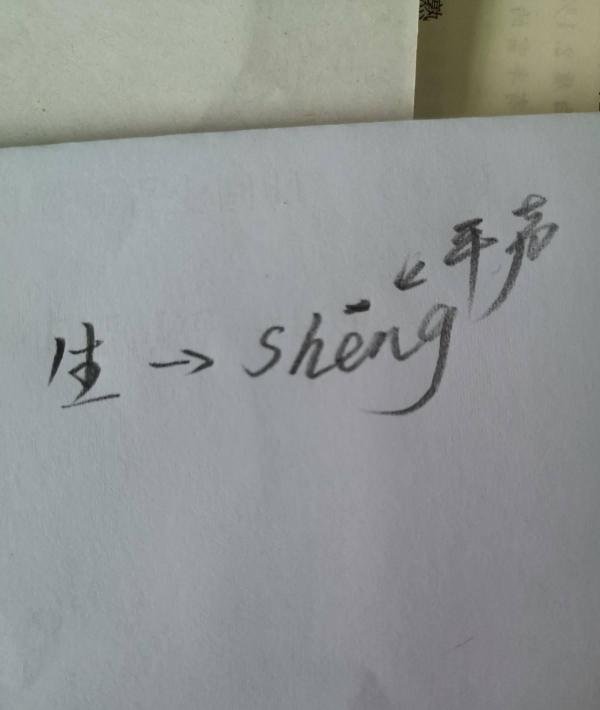 平声
生 → shēng
熟